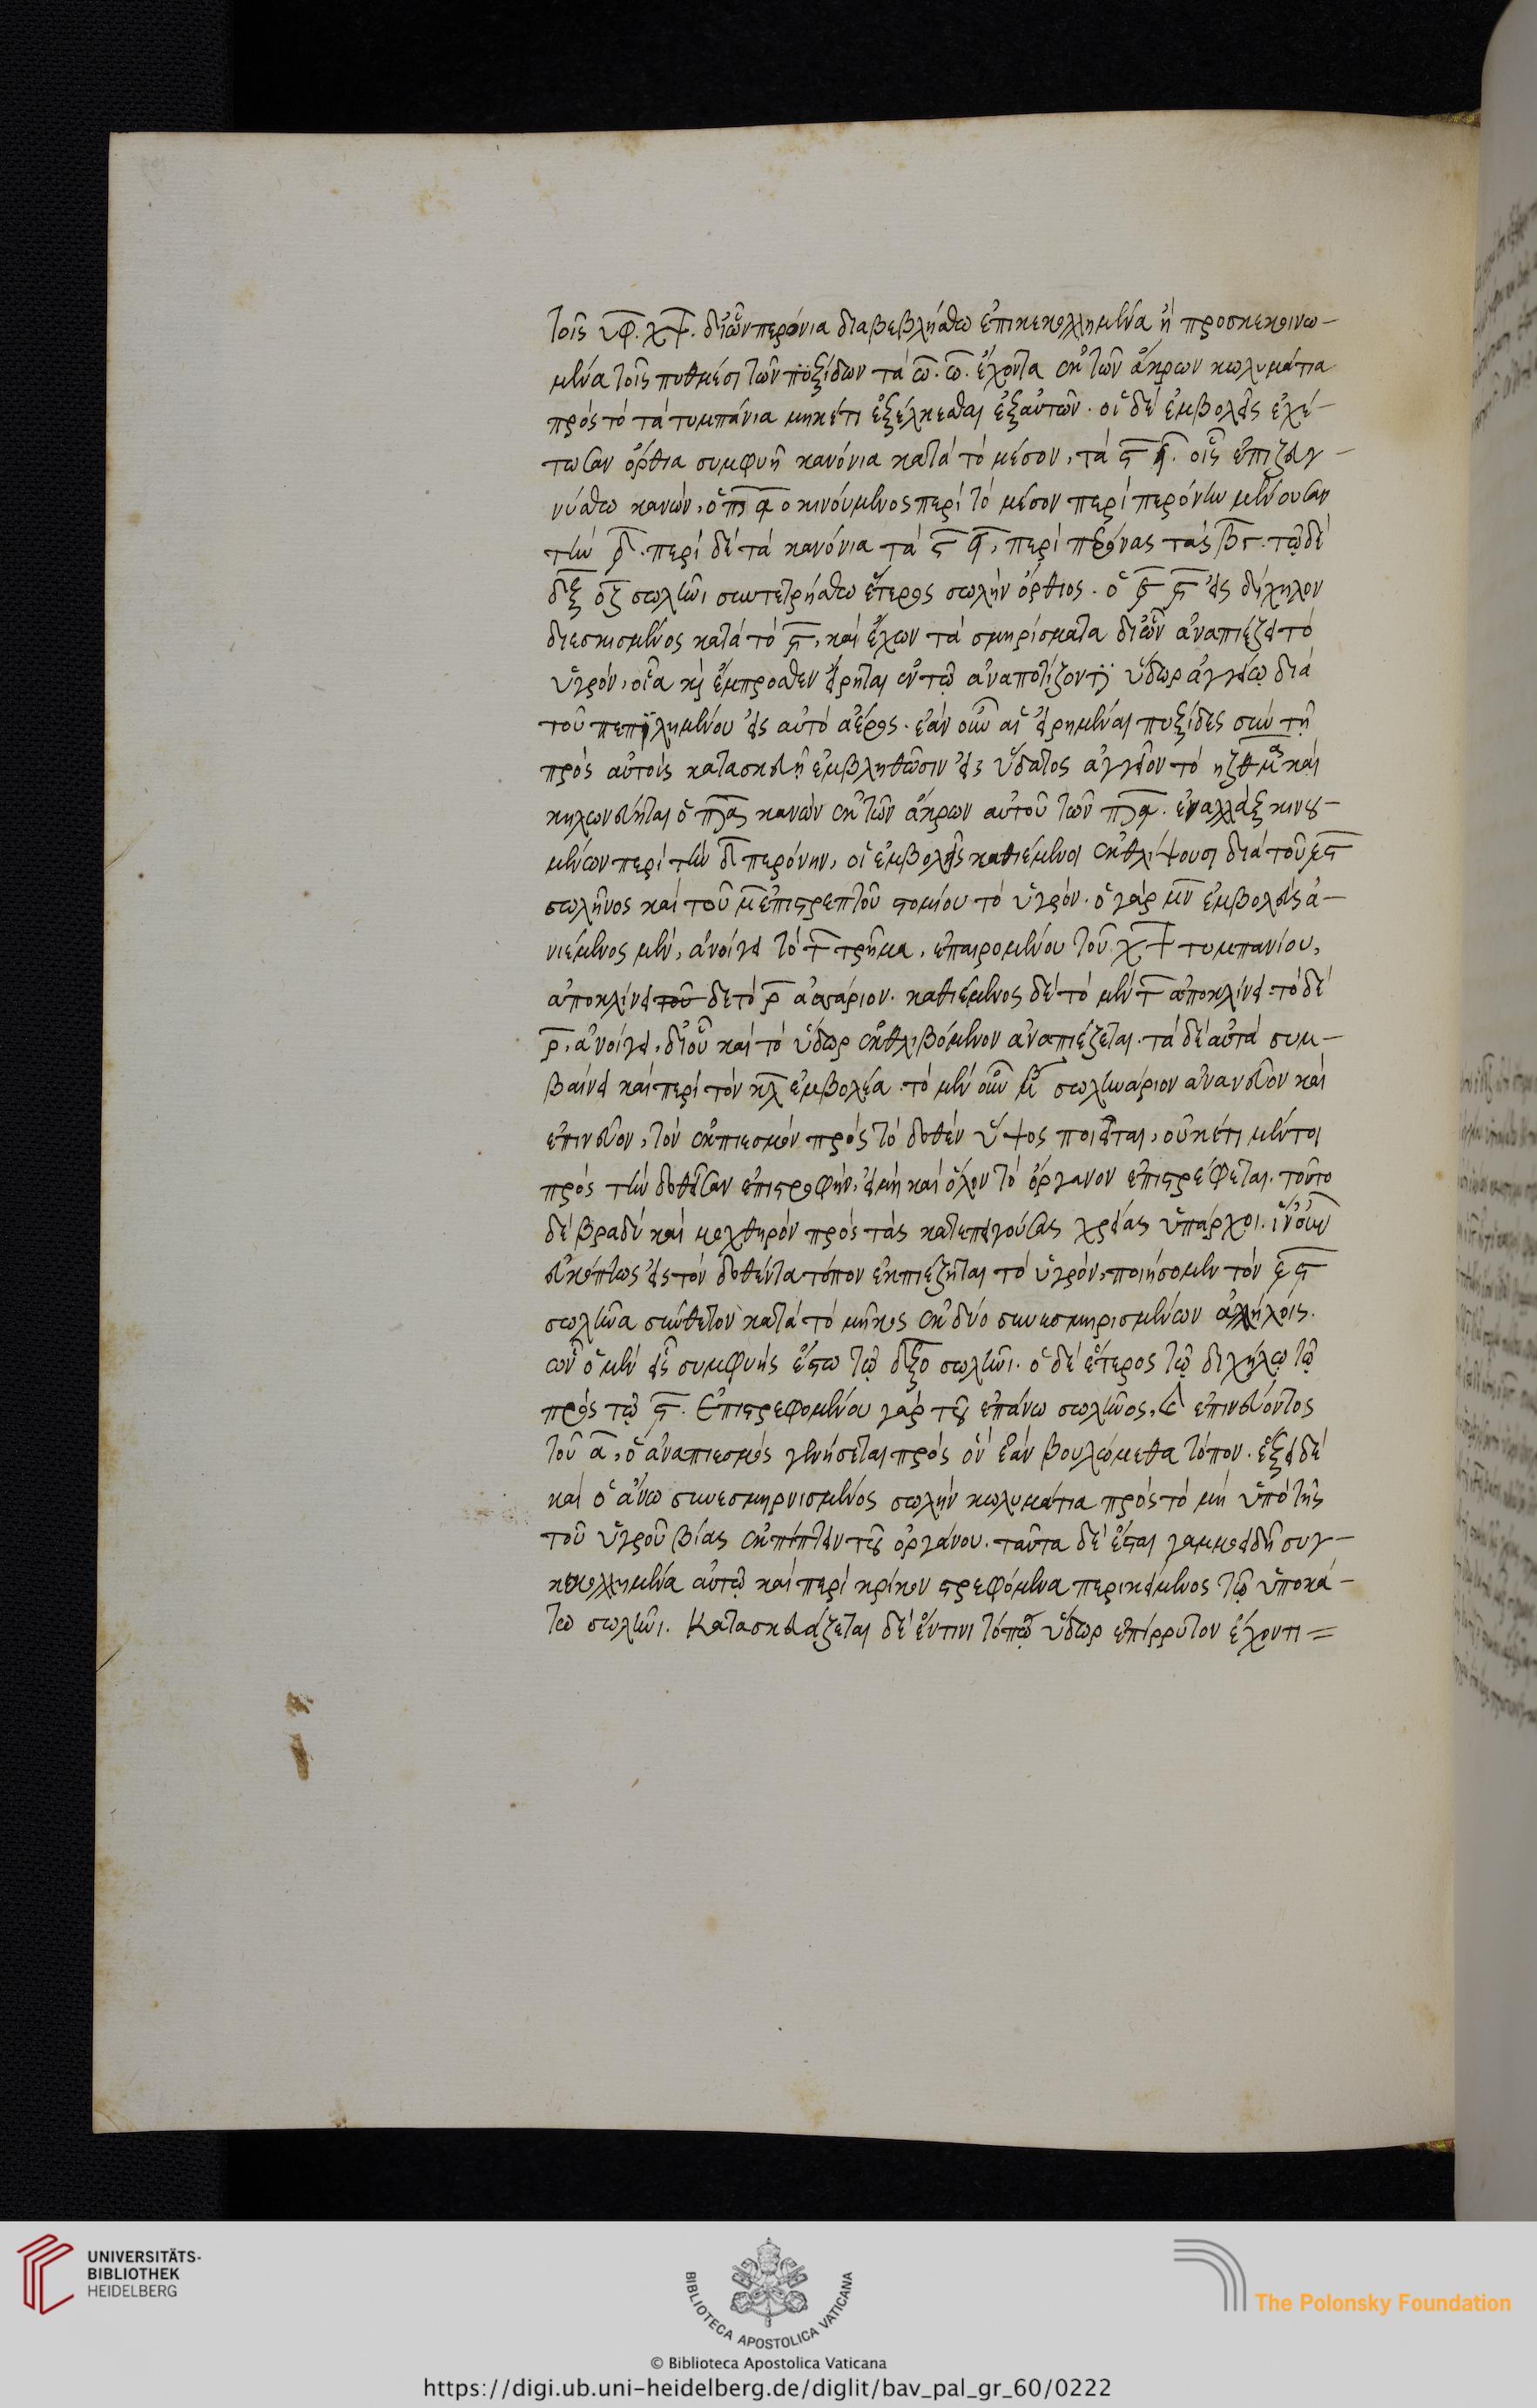 τοῖς υφ. χψ. δι' ὧν περόνια διαβεβλήσθω ἐπικεκολλημένα ἢ προσκεκοινω-
μένα τοῖς πυθμέσι τῶν πυξίδων τὰ ω. ω. ἔχοντα ἐκ τῶν ἄκρων κωλυμάτια
πρὸς τὸ τὰ τυμπάνια μηκέτι ἐξέλκεσθαι ἐξ αὐτῶν. οἱ δὲ ἐμβολεῖς ἐχέ-
τωσαν ὄρθια συμφυῆ κανόνια κατὰ τὸ μέσον, τὰ οἷς ἐπιζευγ-
νύσθω κανών, ὁ κινούμενος περὶ τὸ μέσον περὶ περόνην μένουσαν
τὴν δ. περὶ δὲ τὰ κανόνια τὰ περὶ περόνας τὰς τῷ δὲ
σωλῆνι συντετρήσθω ἕτερος σωλὴν ὄρθιος. ὁ εἰς δίχηλον
διεσκισμένος κατὰ τὸ ϛ, καὶ ἔχων τὰ σμηρίσματα δι' ὧν ἀναπιέζει τὸ
ὑγρόν, οἷα καὶ ἔμπροσθεν εἴρηται ἐν τῷ ἀναπυτίζοντι ὕδωρ ἀγγείῳ διὰ
τοῦ πεπιλημένου εἰς αὐτὸ ἀέρος. ἐὰν οὖν αἱ εἰρημέναι πυξίδες σὺν τῇ
πρὸς αὐτοῖς κατασκευῇ ἐμβληθῶσιν εἰς ὕδατος ἀγγεῖον τὸ ηζθμ καὶ
κηλωνεύηται ὁ κανὼν ἐκ τῶν ἄκρων αὐτοῦ τῶν ἐναλλὰξ κινου-
μένων περὶ τὴν δ περόνην, οἱ ἐμβολεῖς καθιέμενοι ἐκθλίψουσι διὰ τοῦ
σωλῆνος καὶ τοῦ μ ἐπιστρεπτοῦ στομίου τὸ ὑγρόν. ὁ γὰρ μν ἐμβολεὺς ἀ-
νιέμενος μὲν, ἀνοίγει τὸ τ τρῆμα, ἐπαιρομένου τοῦ χψ τυμπανίου,
ἀποκλίνει τοῦ δε τὸ ρ ἀσσάριον. καθιέμενος δὲ τὸ μὲν τ ἀποκλίνει. τὸ δὲ
ρ, ἀνοίγει, δι' οὗ καὶ τὸ ὕδωρ ἐκθλιβόμενον ἀναπιέζεται. τὰ δὲ αὐτὰ συμ-
βαίνει καὶ περὶ τὸν κλ ἐμβολέα. τὸ μὲν οὖν σωληνάριον ἀνανεῦον καὶ
ἐπινεῦον, τὸν ἐκπιεσμὸν πρὸς τὸ δοθὲν ὕψος ποιεῖται, οὐκέτι μέντοι
πρὸς τὴν δοθεῖσαν ἐπιστροφήν, εἰ μὴ καὶ ὅλον τὸ ὄργανον ἐπιστρέφεται. τοῦτο
δὲ βραδὺ καὶ μοχθηρὸν πρὸς τὰς κατεπειγούσας χρείας ὑπάρχοι. ἵν' οὖν
εὐκόπως εἰς τὸν δοθέντα τόπον ἐκπιέζηται τὸ ὑγρόν, ποιήσομεν τὸν
σωλῆνα σύνθετον κατὰ τὸ μῆκος ἐκ δύο συνεσμηρισμένων ἀλλήλοις.
ὧν ὁ μὲν εἷς συμφυὴς ἔστω τῷ δξο σωλῆνι. ὁ δὲ ἕτερος τῷ διχήλῳ τῷ
πρὸς τῷ ϛ. Ἐπιστρεφομένου γὰρ τοῦ ἐπάνω σωλῆνος, καὶ ἐπινεύοντος
τοῦ α, ὁ ἀναπιεσμὸς γενήσεται πρὸς ὃν ἐὰν βουλώμεθα τόπον. ἕξει δὲ
καὶ ὁ ἄνω συνεσμηρνισμένος σωλὴν κωλυμάτια πρὸς τὸ μὴ ὑπὸ τῆς
τοῦ ὑγροῦ βίας ἐκπίπτειν τοῦ ὀργάνου. ταῦτα δὲ ἔσται γαμμοειδῆ συγ-
κεκολλημένα αὐτῷ καὶ περὶ κρίκον στρεφόμενα περικείμενος τῷ ὑποκά-
τω σωλῆνι. Κατασκευάζεται δὲ ἔν τινι τόπῳ ὕδωρ ἐπίρρυτον ἔχοντι =
UNIVERSITÄTS-
BIBLIOTHEK
HEIDELBERG
BIBLIOTECA APOSTOLICA VATICANA
The Polonsky Foundation
© Biblioteca Apostolica Vaticana
https://digi.ub.uni-heidelberg.de/diglit/bav_pal_gr_60/0222